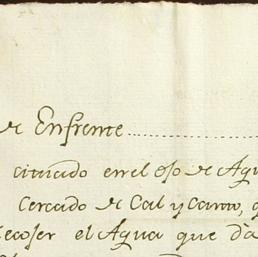 de Enfrente
cituado en el ojo de Agu
Cercado de Cal y Canto, q
ecojer el Agua que da